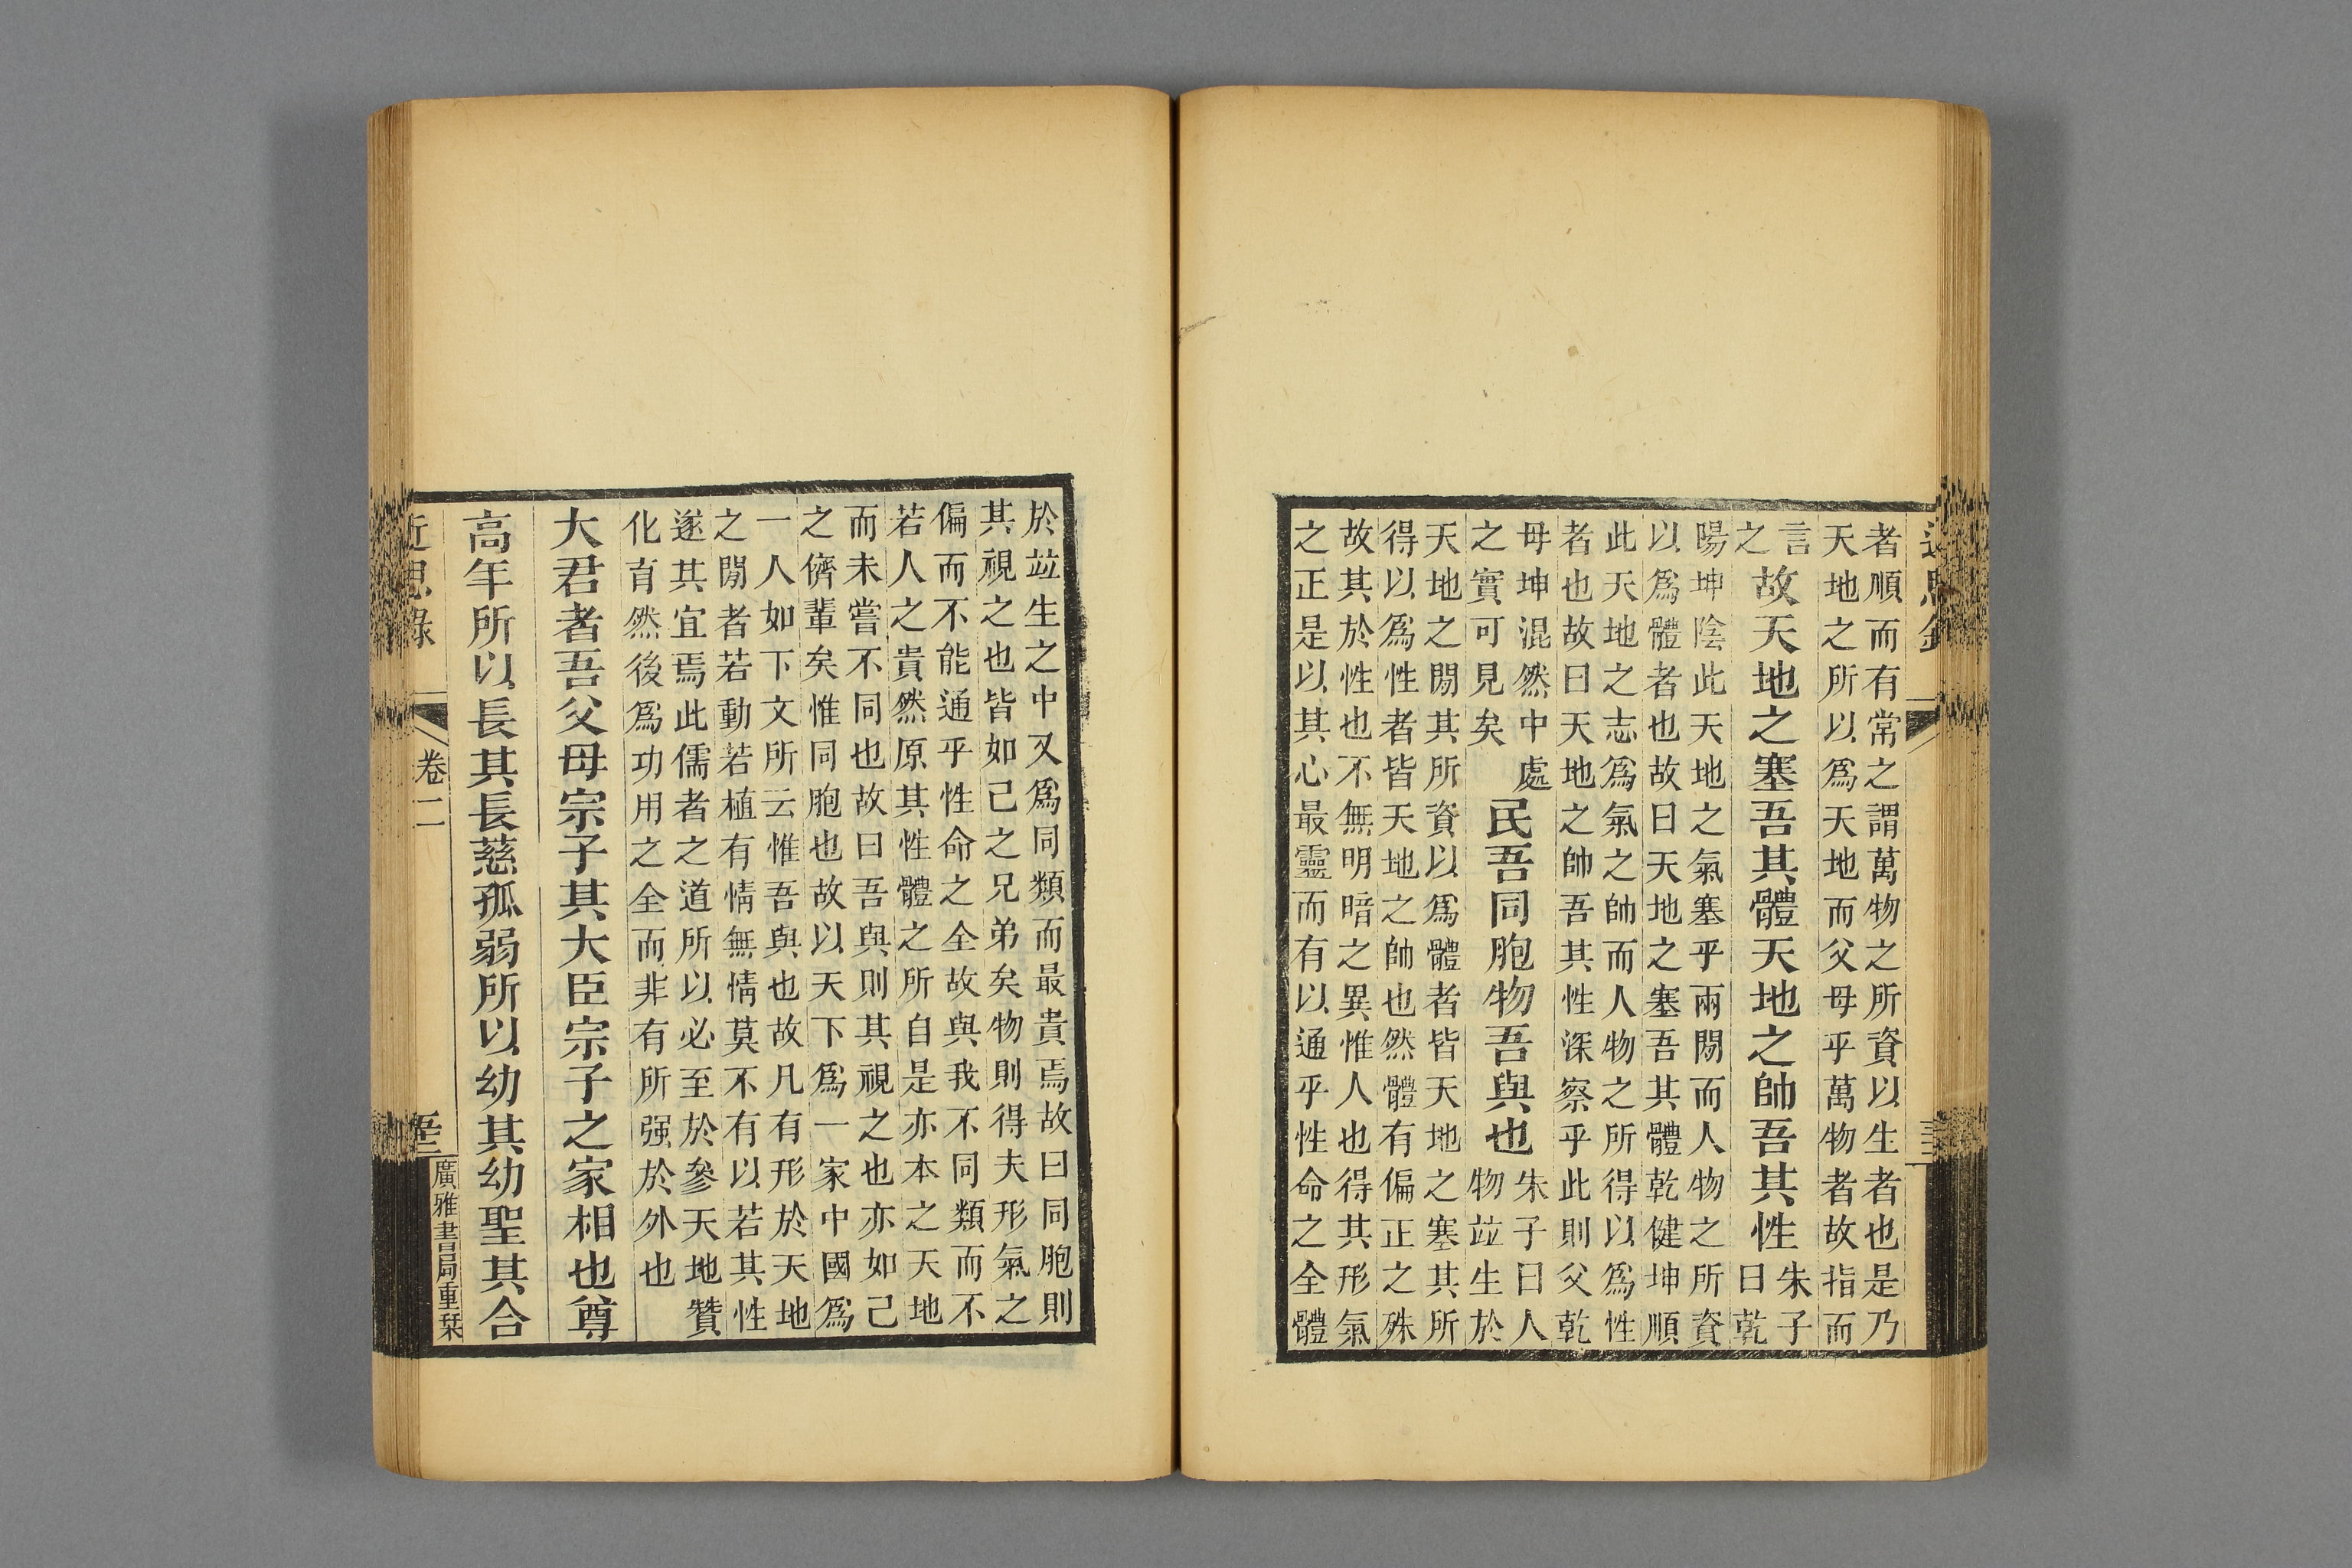 者順而有常之謂萬物之所資以生者也是乃
天地之所以爲天地而父母乎萬物者故指而
言
之
故天地之塞吾其體天地之帥吾其性
朱子
曰乾
陽坤陰此天地之氣塞乎兩閒而人物之所資
以爲體者也故曰天地之塞吾其體乾健坤順
此天地之志爲氣之帥而人物之所得以爲性
者也故曰天地之帥吾其性深察乎此則父乾
母坤混然中處
之實可見矣
民吾同胞物吾與也
朱子曰人
物竝生於
天地之閒其所資以爲體者皆天地之塞其所
得以爲性者皆天地之帥也然體有偏正之殊
故其於性也不無明暗之異惟人也得其形氣
之正是以其心最靈而有以通乎性命之全體
於竝生之中又爲同類而最貴焉故曰同胞則
其視之也皆如己之兄弟矣物則得夫形氣之
偏而不能通乎性命之全故與我不同類而不
若人之貴然原其性體之所自是亦本之天地
而未嘗不同也故曰吾與則其視之也亦如己
之儕輩矣惟同胞也故以天下爲一家中國爲
一人如下文所云惟吾與也故凡有形於天地
之閒者若動若植有情無情莫不有以若其性
遂其宜焉此儒者之道所以必至於參天地贊
化育然後爲功用之全而非有所强於外也
大君者吾父母宗子其大臣宗子之家相也尊
高年所以長其長慈孤弱所以幼其幼聖其合
近思錄
卷二
廣雅書局重栞